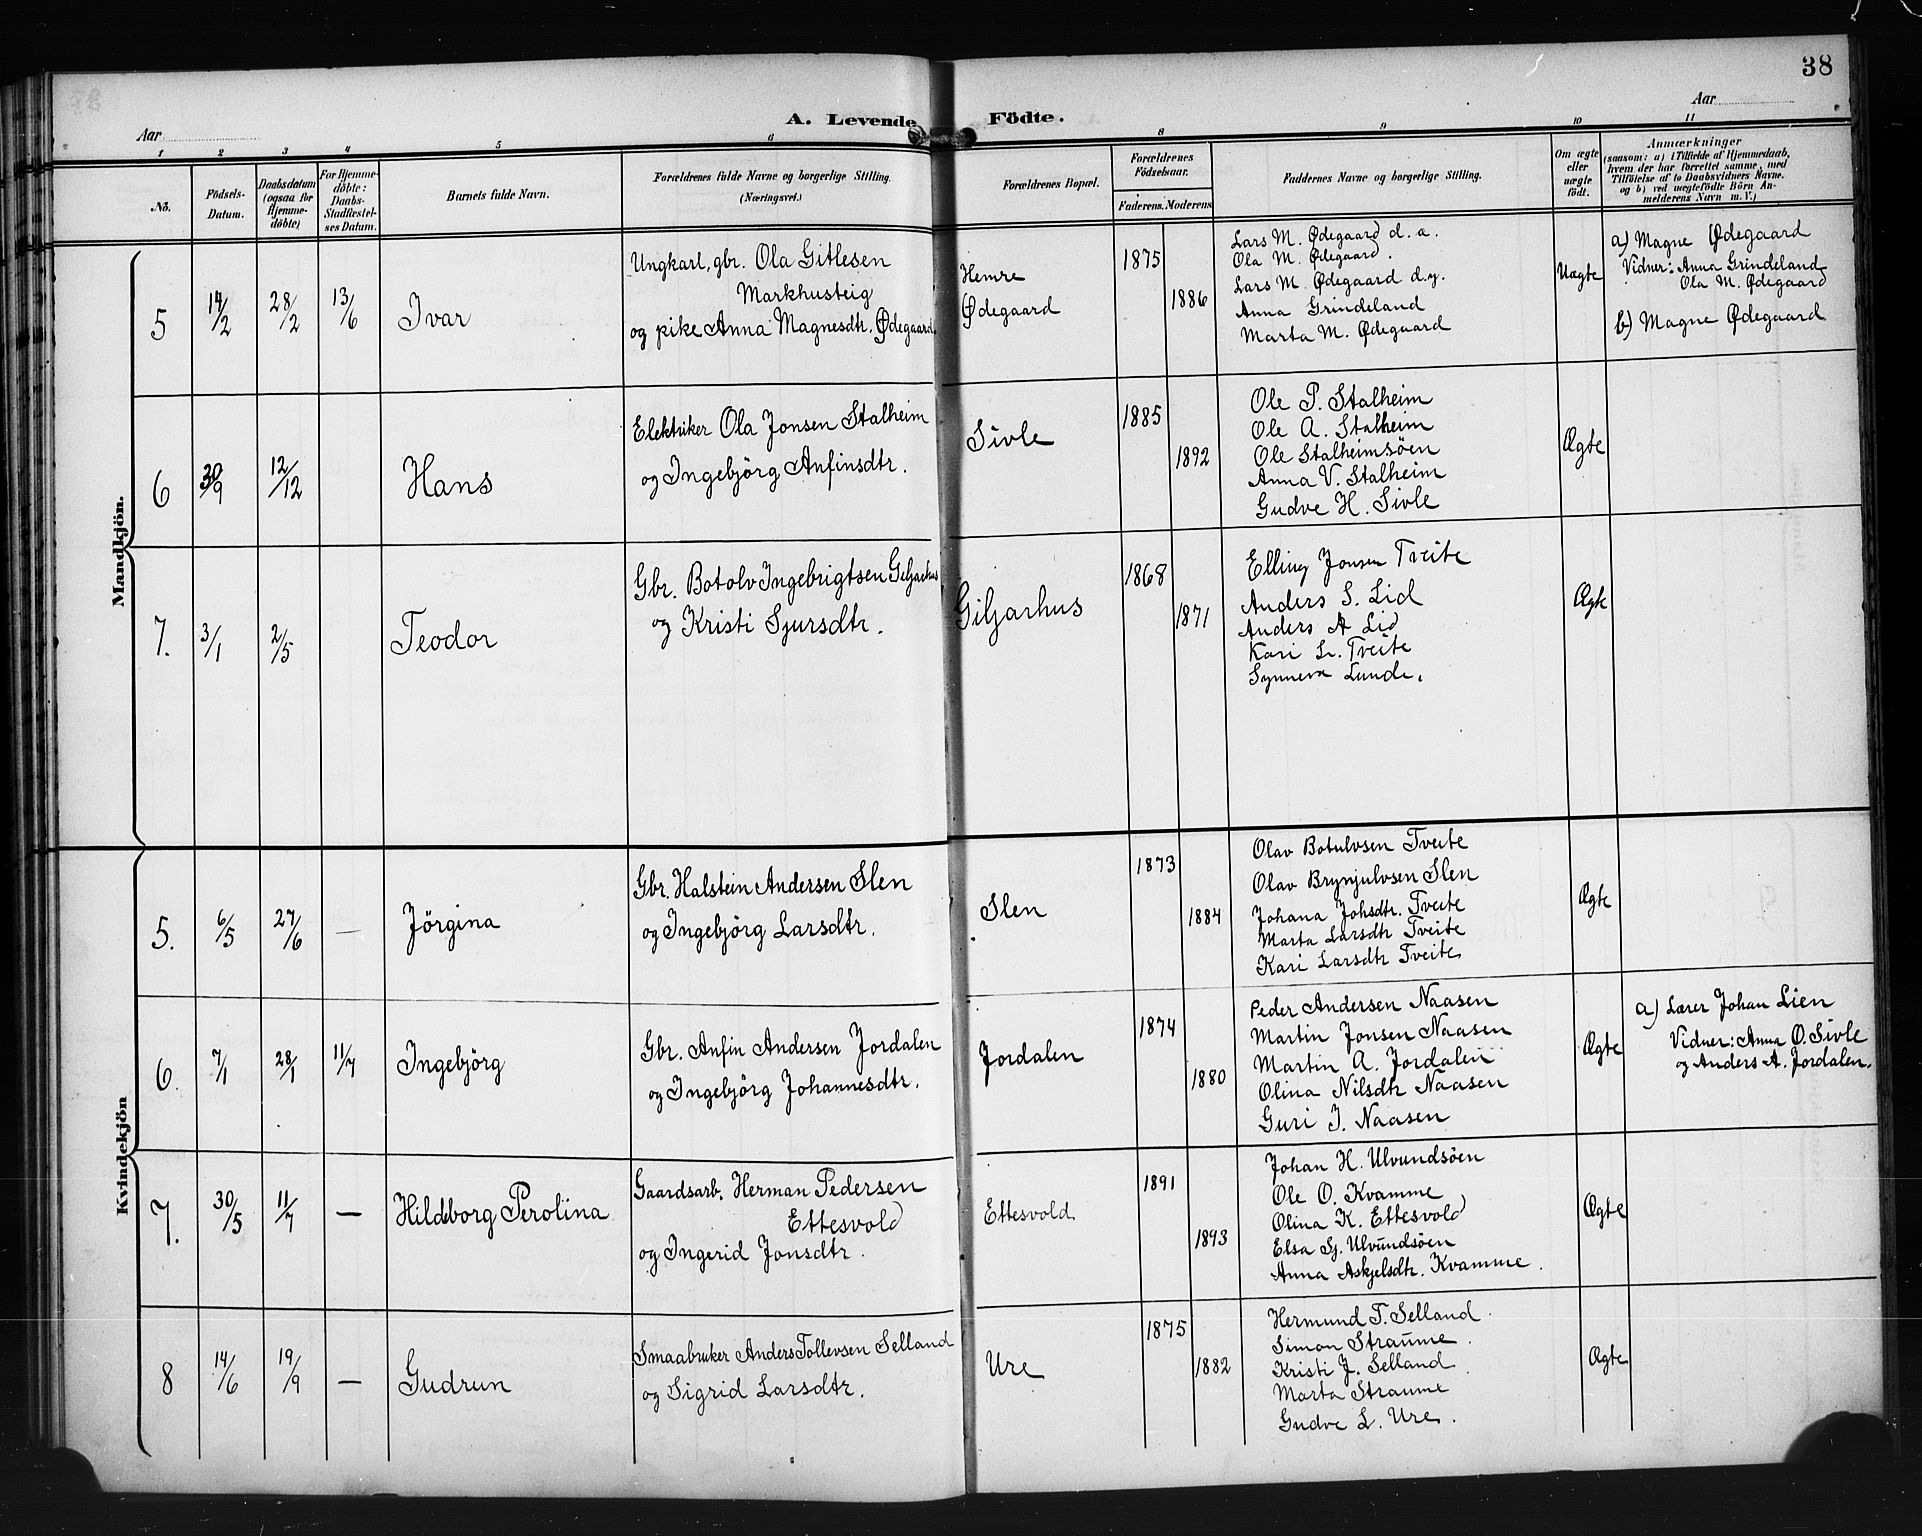 38
A. Levende Födte.
Aar
Aar
1 2 3 4 5 6 8 9 10 11
No.
Födsels-Datum.
Daabsdatum (ogsaa for Hjemme-döbte)
For Hjemme-döbte: Daabs-Stadfæstel-ses Datum.
Barnets fulde Navn.
Forældrenes fulde Navne og borgerlige Stilling.
(Næringsvei.)
Forældrenes Bopæl.
Forældrenes Födselsaar.
Faderens. Moderens
Faddernes Navne og borgerlige Stilling.
Om ægte eller uægte födt.
Anmærkninger
(saasom: a) i Tilfælde af Hjemmedaab,
hvem der har forrettet samme, med
Tilföielse af to Daabsvidners Navne.
og b) ved uægtefödte Börn An-
melderens Navn m. V.)
Mandkjön.
5 14/2 28/2 13/6 Ivar
Ungkarl, gbr. Ola Gitlesen
Markhusteig
og pike Anna Magnesdtr. Ødegaard
Hemre
Ødegaard
1875
1886
Lars M. Ødegaard d. a.
Ola M. Ødegaard.
Lars M. Ødegaard d.y.
Anna Grindeland
Marta M. Ødegaard
Uægte
a) Magne Ødegaard
Vidner: Anna Grindeland
Ola M. Ødegaard
b) Magne Ødegaard
6 30/9 12/12 Hans
Elektriker Ola Jonsen Stalheim
og Ingebjörg Anfinsdtr.
Sivle
1885
1892
Ole P. Stalheim
Ole A. Stalheim
Ole Stalheimsöen
Anna V. Stalheim
Gudve H. Sivle
Ægte
7. 3/1 2/5 Teodor
Gbr. Botolv Ingebrigtsen Giljarhus
og Kristi Sjursdtr.
Giljarhus
1868
1871
Elling Jonsen Tveite
Anders S. Lid
Anders A Lid
Kari L. Tveite
Synneva Lunde.
Ægte
Kvindekjön
5. 6/5 27/6 — Jörgina
Gbr. Halstein Andersen Slen
og Ingebjörg Larsdtr.
Slen
1873
1884
Olav Botulvsen Tveite
Olav Brynjulvsen Slen
Johana Johsdtr. Tveite
Marta Larsdtr Tveite
Kari Larsdtr Tveite
Ægte
6. 7/1 28/1 11/7 Ingebjörg
Gbr. Anfin Andersen Jordalen
og Ingebjörg Johannesdtr.
Jordalen
1874
1880
Peder Andersen Naasen
Martin Jonsen Naasen
Martin A. Jordalen
Olina Nilsdtr Naasen
Guri J. Naasen
Ægte
a) Lærer Johan Lien
Vidner: Anna O. Sivle
og Anders A. Jordalen.
7. 30/5 11/7 — Hildeborg Perolina
Gaardsarb. Herman Pedersen
Ettesvold
og Ingerid Jonsdtr.
Ettesvold
1891
1893
Johan H. Ulvundsöen
Ole O. Kvamme
Olina K. Ettesvold
Elsa Sj. Ulvundsöen
Anna Askjelsdtr. Kvamme.
Ægte
8 14/6 19/9 — Gudrun
Smaabruker Anders Tollevsen Selland
og Sigrid Larsdtr.
Ure
1875
1882
Hermund T. Selland.
Simon Straume.
Kristi J. Selland.
Marta Straume
Gudve L. Ure.
Ægte